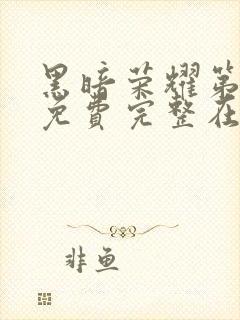 黑暗荣耀第
免费完整在
非鱼